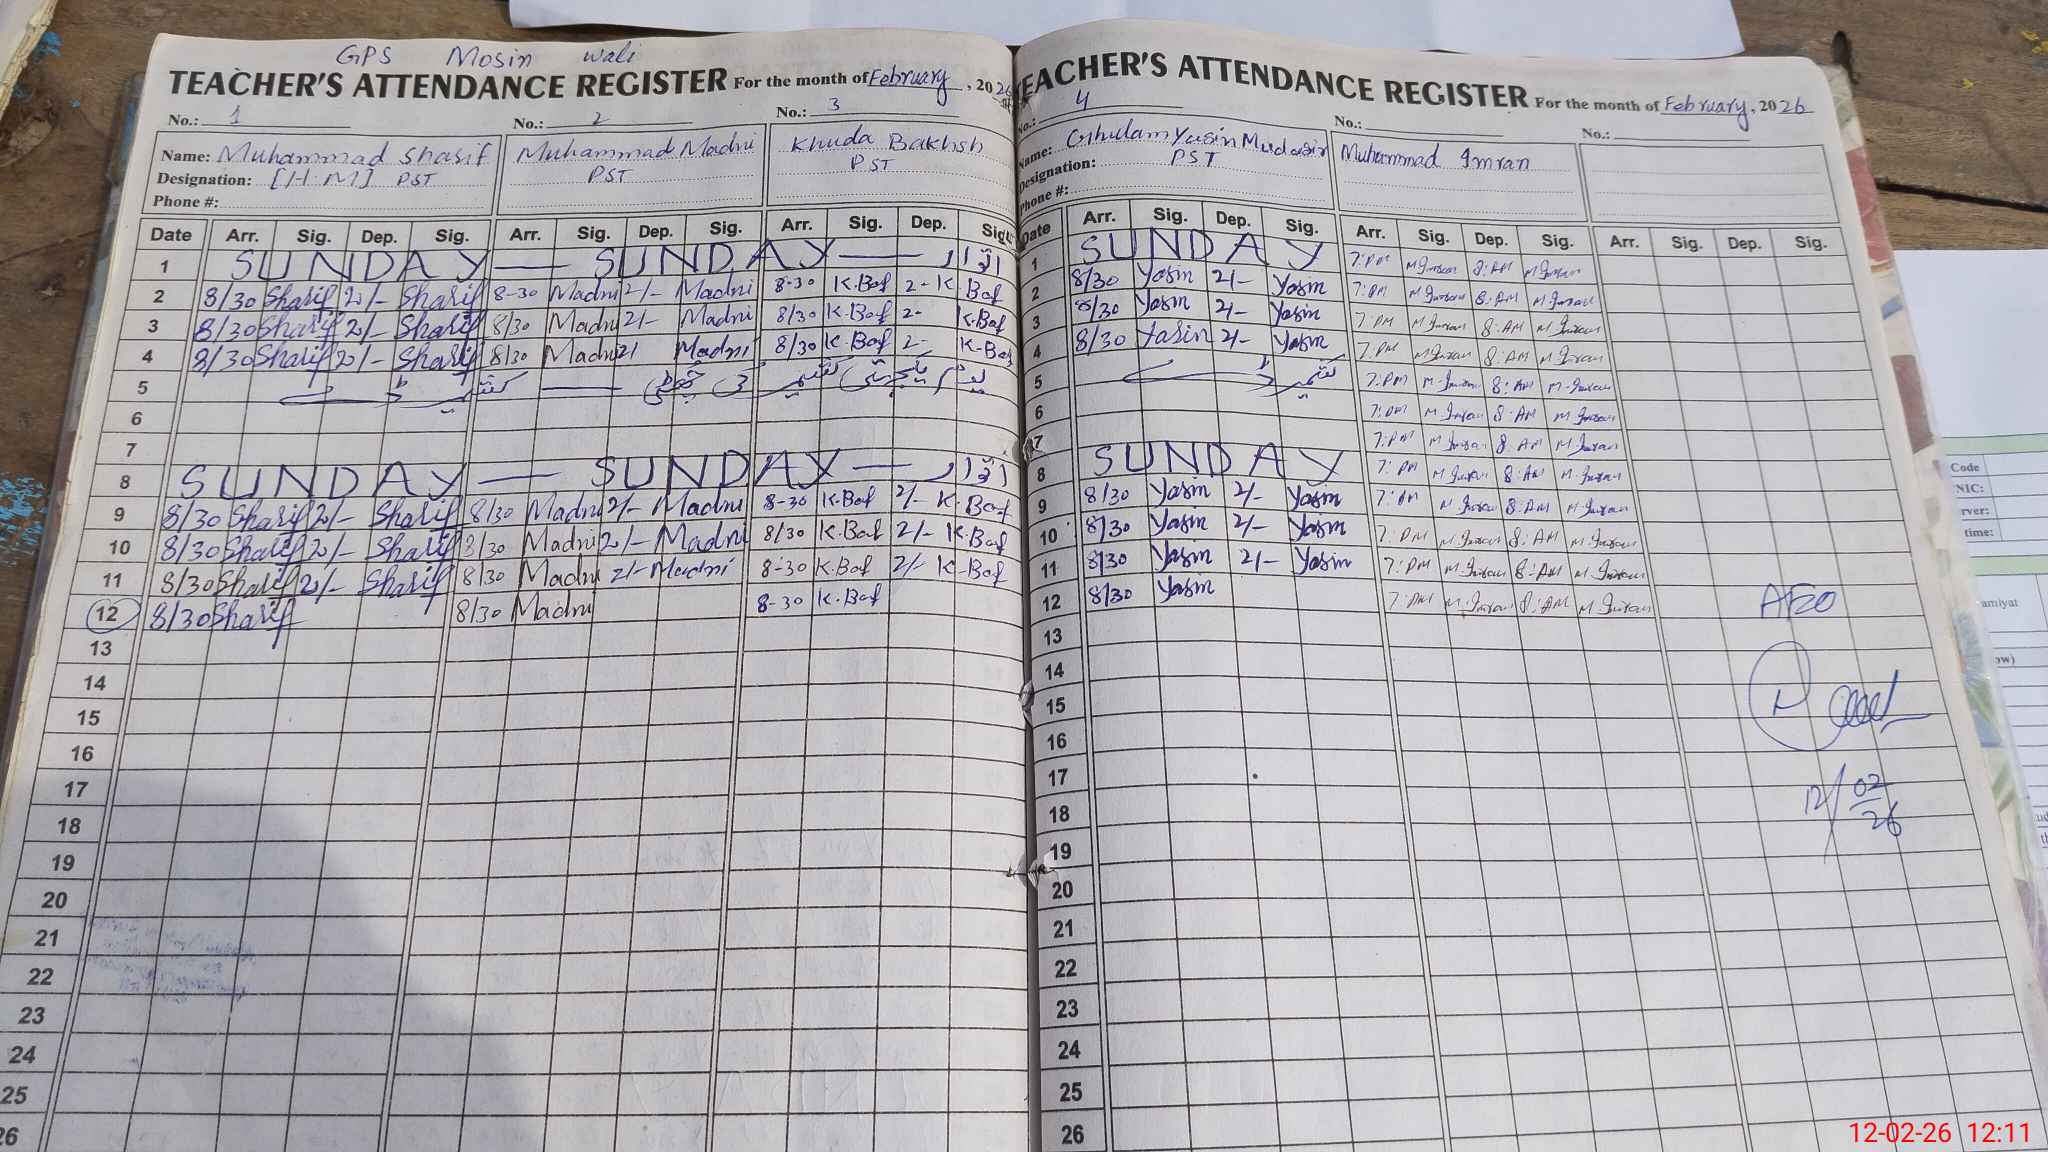 GPS Mosin wali
TEACHER'S ATTENDANCE REGISTER For the month of February, 2026
No.: 1 No.: 2 No.: 3
Name: Muhammad Sharif Muhammad Madni Khuda Bakhsh
Designation: [H.M] PST PST PST
Phone #:
Date Arr. Sig. Dep. Sig. Arr. Sig. Dep. Sig. Arr. Sig. Dep. Sig.
1 SUNDAY — SUNDAY — اتوار
2 8/30 Sharif 2/- Sharif 8-30 Madni 2/- Madni 8-30 K.Baf 2- K.Baf
3 8/30 Sharif 2/- Sharif 8/30 Madni 2/- Madni 8/30 K.Baf 2- K.Baf
4 8/30 Sharif 2/- Sharif 8/30 Madni 2/ Madni 8/30 K.Baf 2- K.Baf
5 یوم یکجہتی کشمیر کی چھٹی — کشمیر ڈے
6
7
8 SUNDAY — SUNDAY — اتوار
9 8/30 Sharif 2/- Sharif 8/30 Madni 2/- Madni 8-30 K.Baf 2/- K.Baf
10 8/30 Sharif 2/- Sharif 8/30 Madni 2/- Madni 8/30 K.Baf 2/- K.Baf
11 8/30 Sharif 2/- Sharif 8/30 Madni 2/- Madni 8-30 K.Baf 2/- K.Baf
12 8/30 Sharif 8/30 Madni 8-30 K.Baf
13
14
15
16
17
18
19
20
21
22
23
24
25
26
TEACHER'S ATTENDANCE REGISTER For the month of February, 2026
No.: 4 No.: No.:
Name: Ghulam Yasin Mudasir Muhammad Imran
Designation: PST
Phone #:
Date Arr. Sig. Dep. Sig. Arr. Sig. Dep. Sig. Arr. Sig. Dep. Sig.
1 SUNDAY 7:PM M.Imran 8:AM M.Imran
2 8/30 Yasin 2/- Yasin 7:PM M.Imran 8:AM M.Imran
3 8/30 Yasin 2/- Yasin 7:PM M.Imran 8:AM M.Imran
4 8/30 Yasin 2/- Yasin 7:PM M.Imran 8:AM M.Imran
5 کشمیر ڈے 7:PM M.Imran 8:AM M.Imran
6 7:PM M.Imran 8:AM M.Imran
7 7:PM M.Imran 8:AM M.Imran
8 SUNDAY 7:PM M.Imran 8:AM M.Imran
9 8/30 Yasin 2/- Yasin 7:PM M.Imran 8:AM M.Imran
10 8/30 Yasin 2/- Yasin 7:PM M.Imran 8:AM M.Imran
11 8/30 Yasin 2/- Yasin 7:PM M.Imran 8:AM M.Imran
12 8/30 Yasin 7:PM M.Imran 8:AM M.Imran
13
14
15
16
17
18
19
20
21
22
23
24
25
26
AEO
12/02/26
Code
NIC:
rver:
time:
amiyat
ow)
12-02-26 12:11